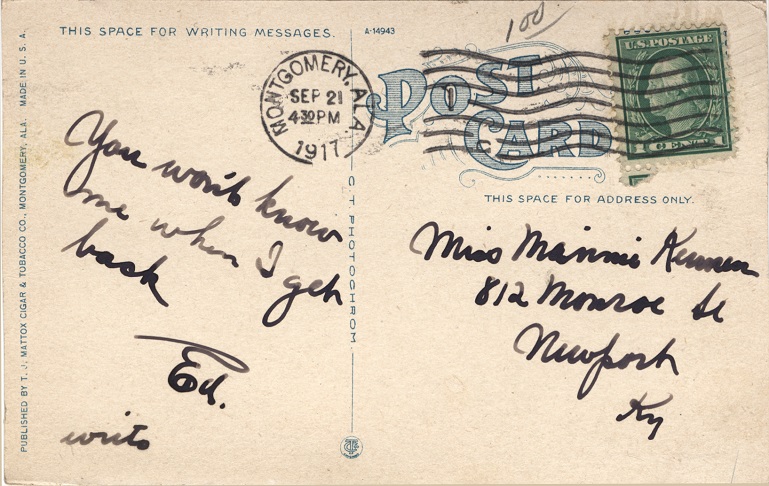 THIS SPACE FOR WRITING MESSAGES.
A-14943
100
MONTGOMERY, ALA.
SEP 21
4 30 PM
1917
POST
CARD
U.S. POSTAGE
1 CENT 1
THIS SPACE FOR ADDRESS ONLY.
You won't know
me when I get
back
Ed.
write
Miss Mannie
812 Monroe St
Newport
Ky
C. T. PHOTOCHROM
PUBLISHED BY T. J. MATTOX CIGAR & TOBACCO CO., MONTGOMERY, ALA. MADE IN U. S. A.